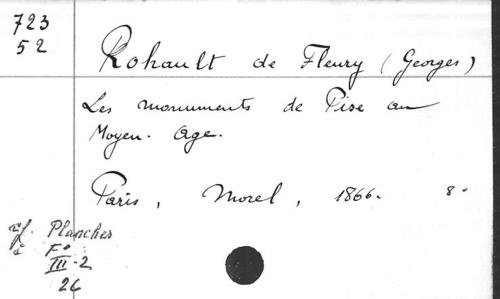 723
52
Rohault de Fleury (Georges)
Les monuments de Pise au
Moyen-Age.
Paris, Morel, 1866. 8°
cf. Planches
F°
III-2
26